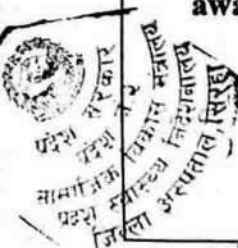 awa
प्रदेश सरकार
प्रदेश
सामाजिक विकास मंत्रालय
प्रदेश स्वास्थ्य निर्देशनालय
जिल्ला अस्पताल, सिरहा